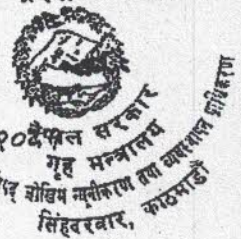 नेपाल सरकार
गृह मन्त्रालय
जोखिम न्यूनीकरण तथा व्यवस्थापन प्राधिकरण
सिंहदरवार, काठमाडौं